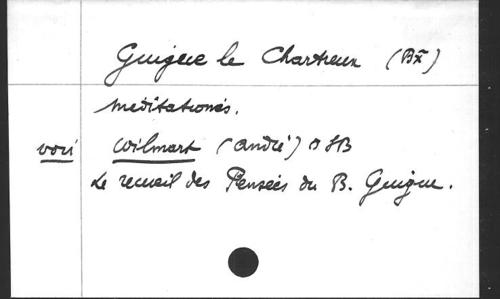 Guigue le Chartreux (Bx)
meditationes.
voir Wilmart (André) OSB
Le recueil des Pensées du B. Guigue.